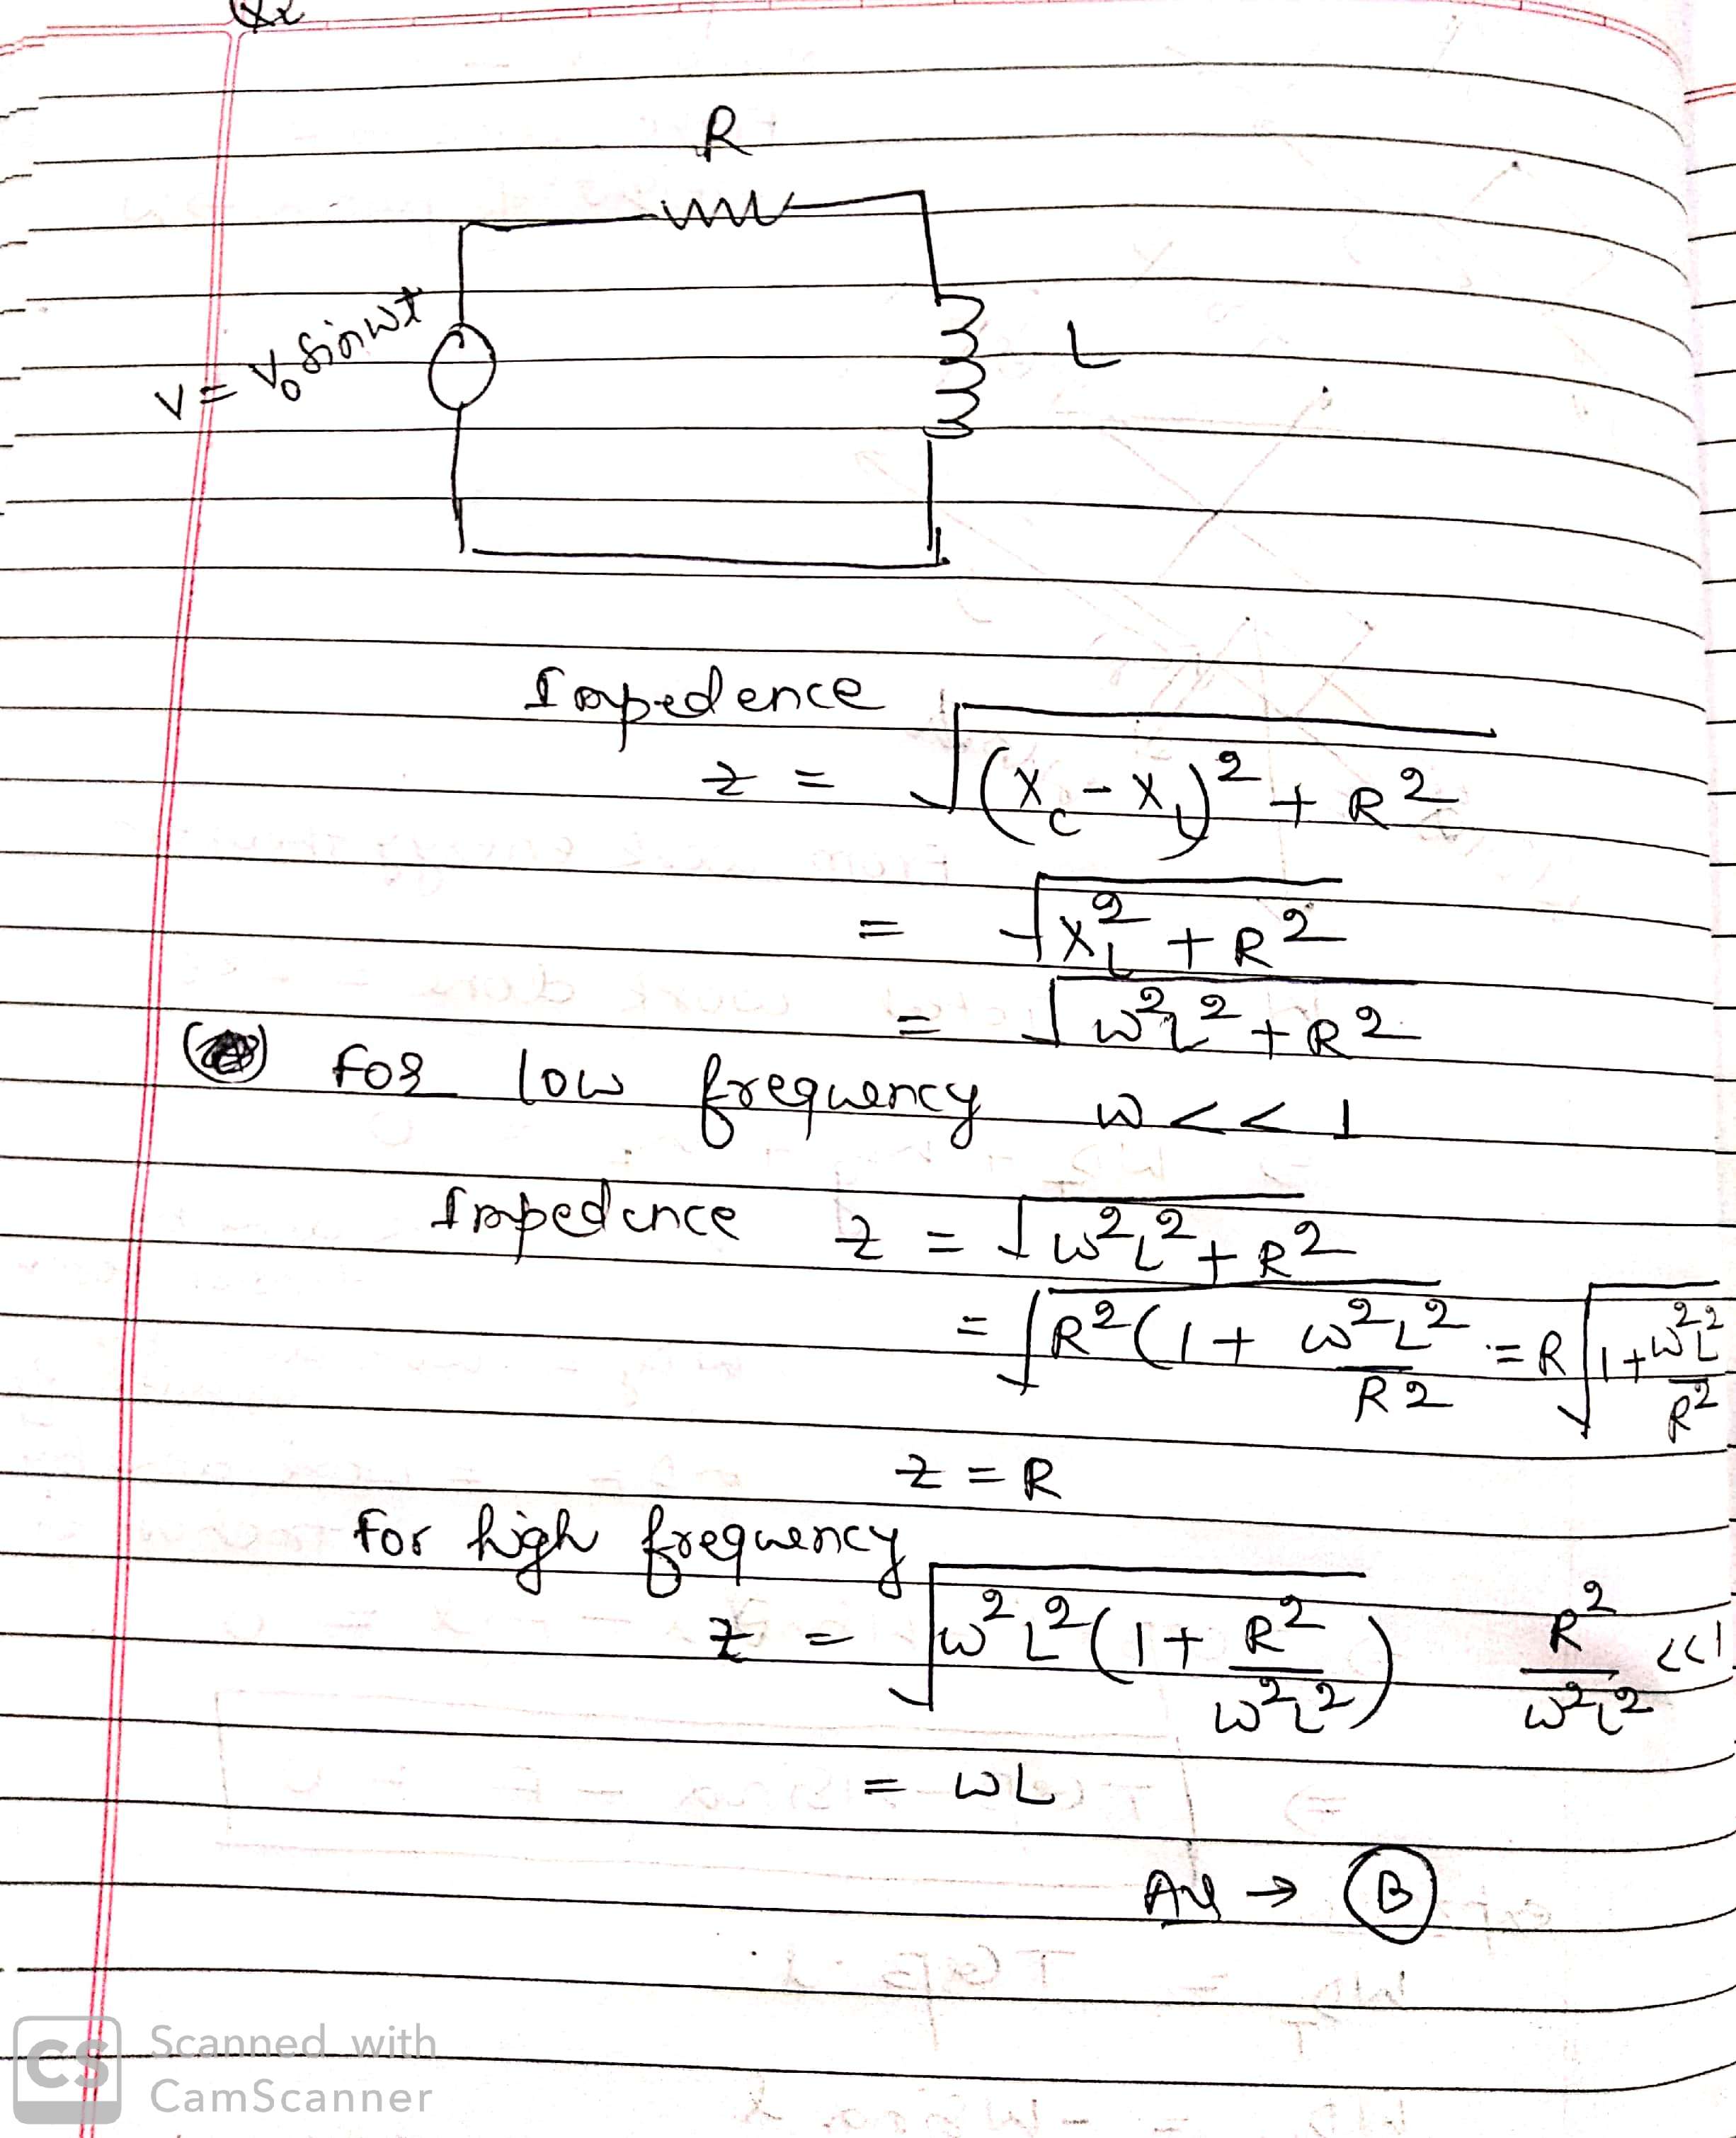 R
V = V₀ sinwt
L
Impedence
z = √((X_C - X_L)² + R²)
= √(X_L² + R²)
= √(w²L² + R²)
for low frequency w << 1
Impedence z = √(w²L² + R²)
= √(R²(1 + w²L²/R² = R√(1 + w²L²/R²)
z = R
For high frequency
z = √(w²L²(1 + R²/w²L²)) R²/w²L² <<1
= wL
Ans → B
CS Scanned with
CamScanner